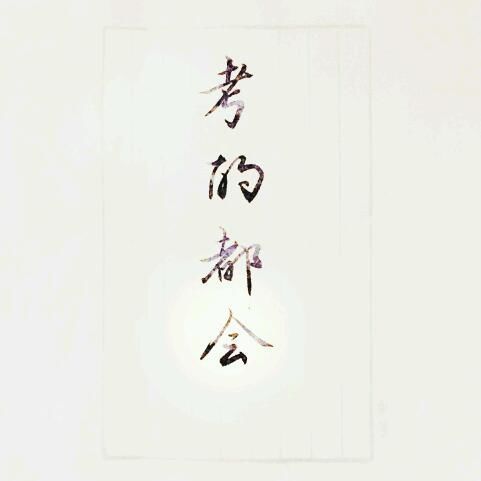 考的都会